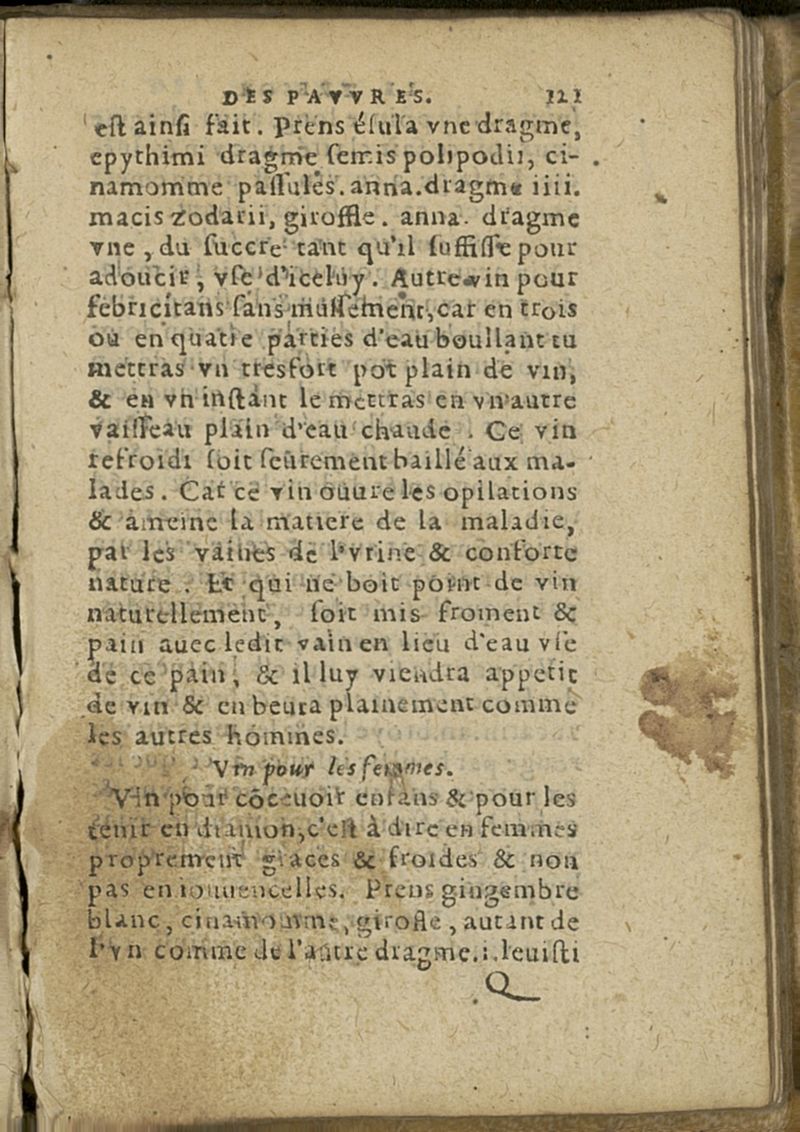 DES PAVVRES. 121
est ainsi fait. Prens ésula vne dragme,
epythimi dragme semis polipodii, ci-
namomme passules. anna. dragme iiii.
macis zodarii, giroffle. anna. dragme
vne, du succre tant qu'il suffisse pour
adoucir, vse d'iceluy. Autre vin pour
febricitans sans mussement, car en trois
ou en quatre parties d'eau boullant tu
mettras vn tresfort pot plain de vin,
& en vn instant le mettras en vn'autre
vaisseau plain d'eau chaude. Ce vin
refroidi soit seurement baillé aux ma-
lades. Car ce vin ouure les opilations
& ameine la matiere de la maladie,
par les vaines de l'vrine & conforte
nature. Et qui ne boit point de vin
naturellement, soit mis froment &
pain auec ledit vain en lieu d'eau vse
de ce pain, & il luy viendra appetit
de vin & en beura plainement comme
les autres hommes.
Vin pour les femmes.
Vin pour côceuoir enfans & pour les
tenir en diamon, c'est à dire en femmes
proprement graces & froides & non
pas en iouuencelles. Prens gingembre
blanc, cinamomme, girofle, autant de
l'vn comme de l'autre dragme.i. leuisti
Q